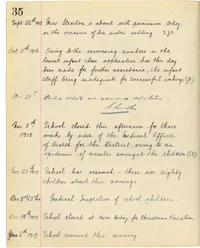 35
Sept 26th 1912 Miss Stretton is absent with permission today,
on the occasion of her sister's wedding.
Oct 8th 1912 Owing to the increasing numbers in the
lowest infant class application has this day
been made for further assistance, the infant
staff being inadequate for successful working
Nov 5th School closed this afternoon for three
1912 weeks by order of the Medical Officer
of Health for the District, owing to an
epidemic of measles amongst the children
Nov 25th 1912 School has resumed – there are eighty
children absent this morning.
Medical Inspection of School children.
Dec 19th 1912 School closed at noon today for Christmas Vacation
Jan 6th 1913 School resumed this morning